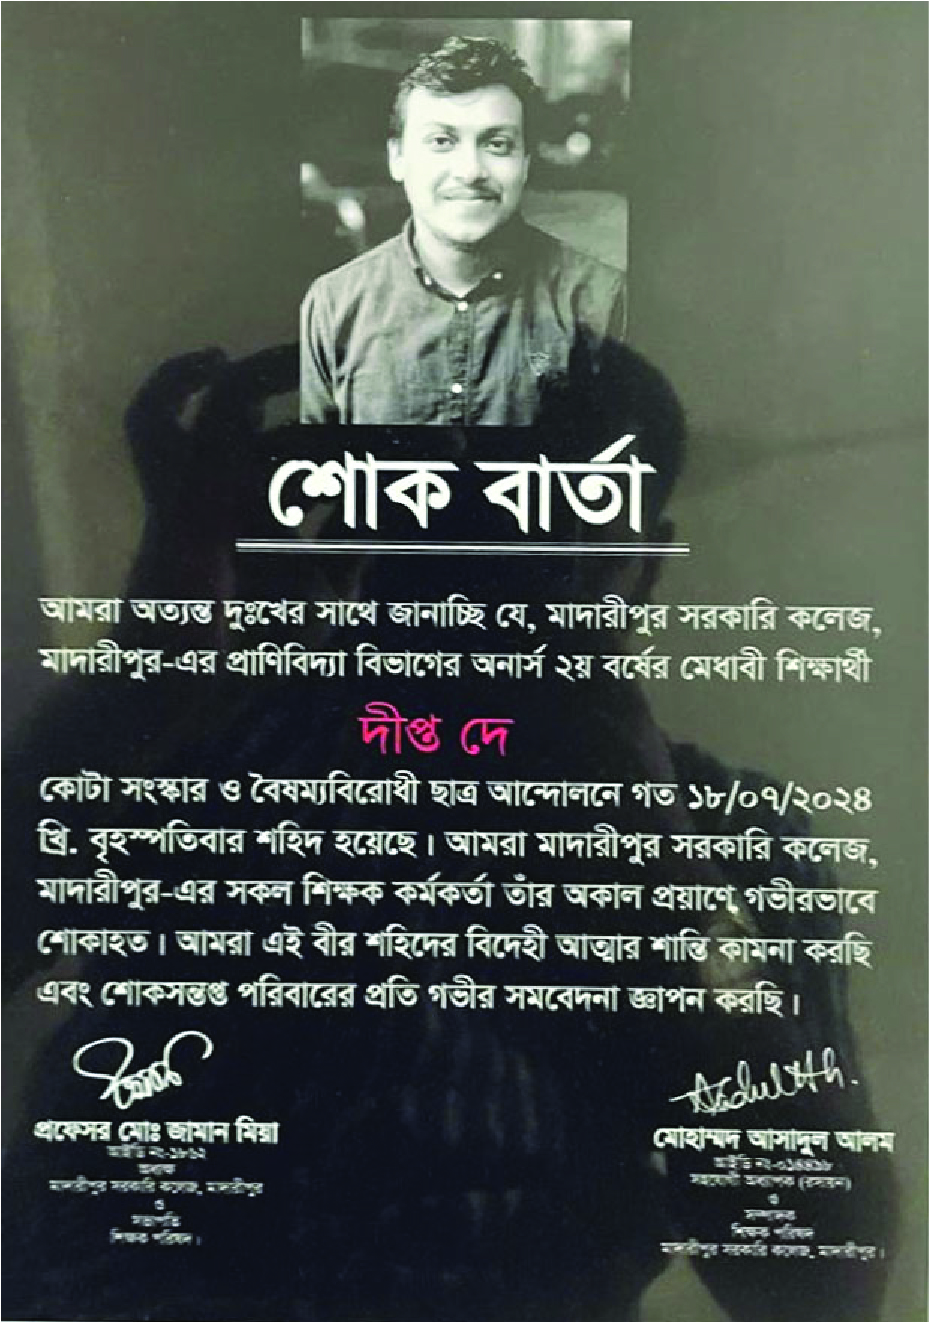 শোক বার্তা
আমরা অত্যন্ত দুঃখের সাথে জানাচ্ছি যে, মাদারীপুর সরকারি কলেজ,
মাদারীপুর-এর প্রাণিবিদ্যা বিভাগের অনার্স ২য় বর্ষের মেধাবী শিক্ষার্থী
দীপ্ত দে
কোটা সংস্কার ও বৈষম্যবিরোধী ছাত্র আন্দোলনে গত ১৮/০৭/২০২৪
খ্রি. বৃহস্পতিবার শহিদ হয়েছে। আমরা মাদারীপুর সরকারি কলেজ,
মাদারীপুর-এর সকল শিক্ষক কর্মকর্তা তাঁর অকাল প্রয়াণে গভীরভাবে
শোকাহত। আমরা এই বীর শহিদের বিদেহী আত্মার শান্তি কামনা করছি
এবং শোকসন্তপ্ত পরিবারের প্রতি গভীর সমবেদনা জ্ঞাপন করছি।
প্রফেসর মোঃ জামান মিয়া
আইডি নং-
অধ্যক্ষ
মাদারীপুর সরকারি কলেজ, মাদারীপুর
ও
সভাপতি
শিক্ষক পরিষদ।
মোহাম্মদ আসাদুল আলম
আইডি নং-
সহযোগী অধ্যাপক (রসায়ন)
ও
সম্পাদক
শিক্ষক পরিষদ
মাদারীপুর সরকারি কলেজ, মাদারীপুর।